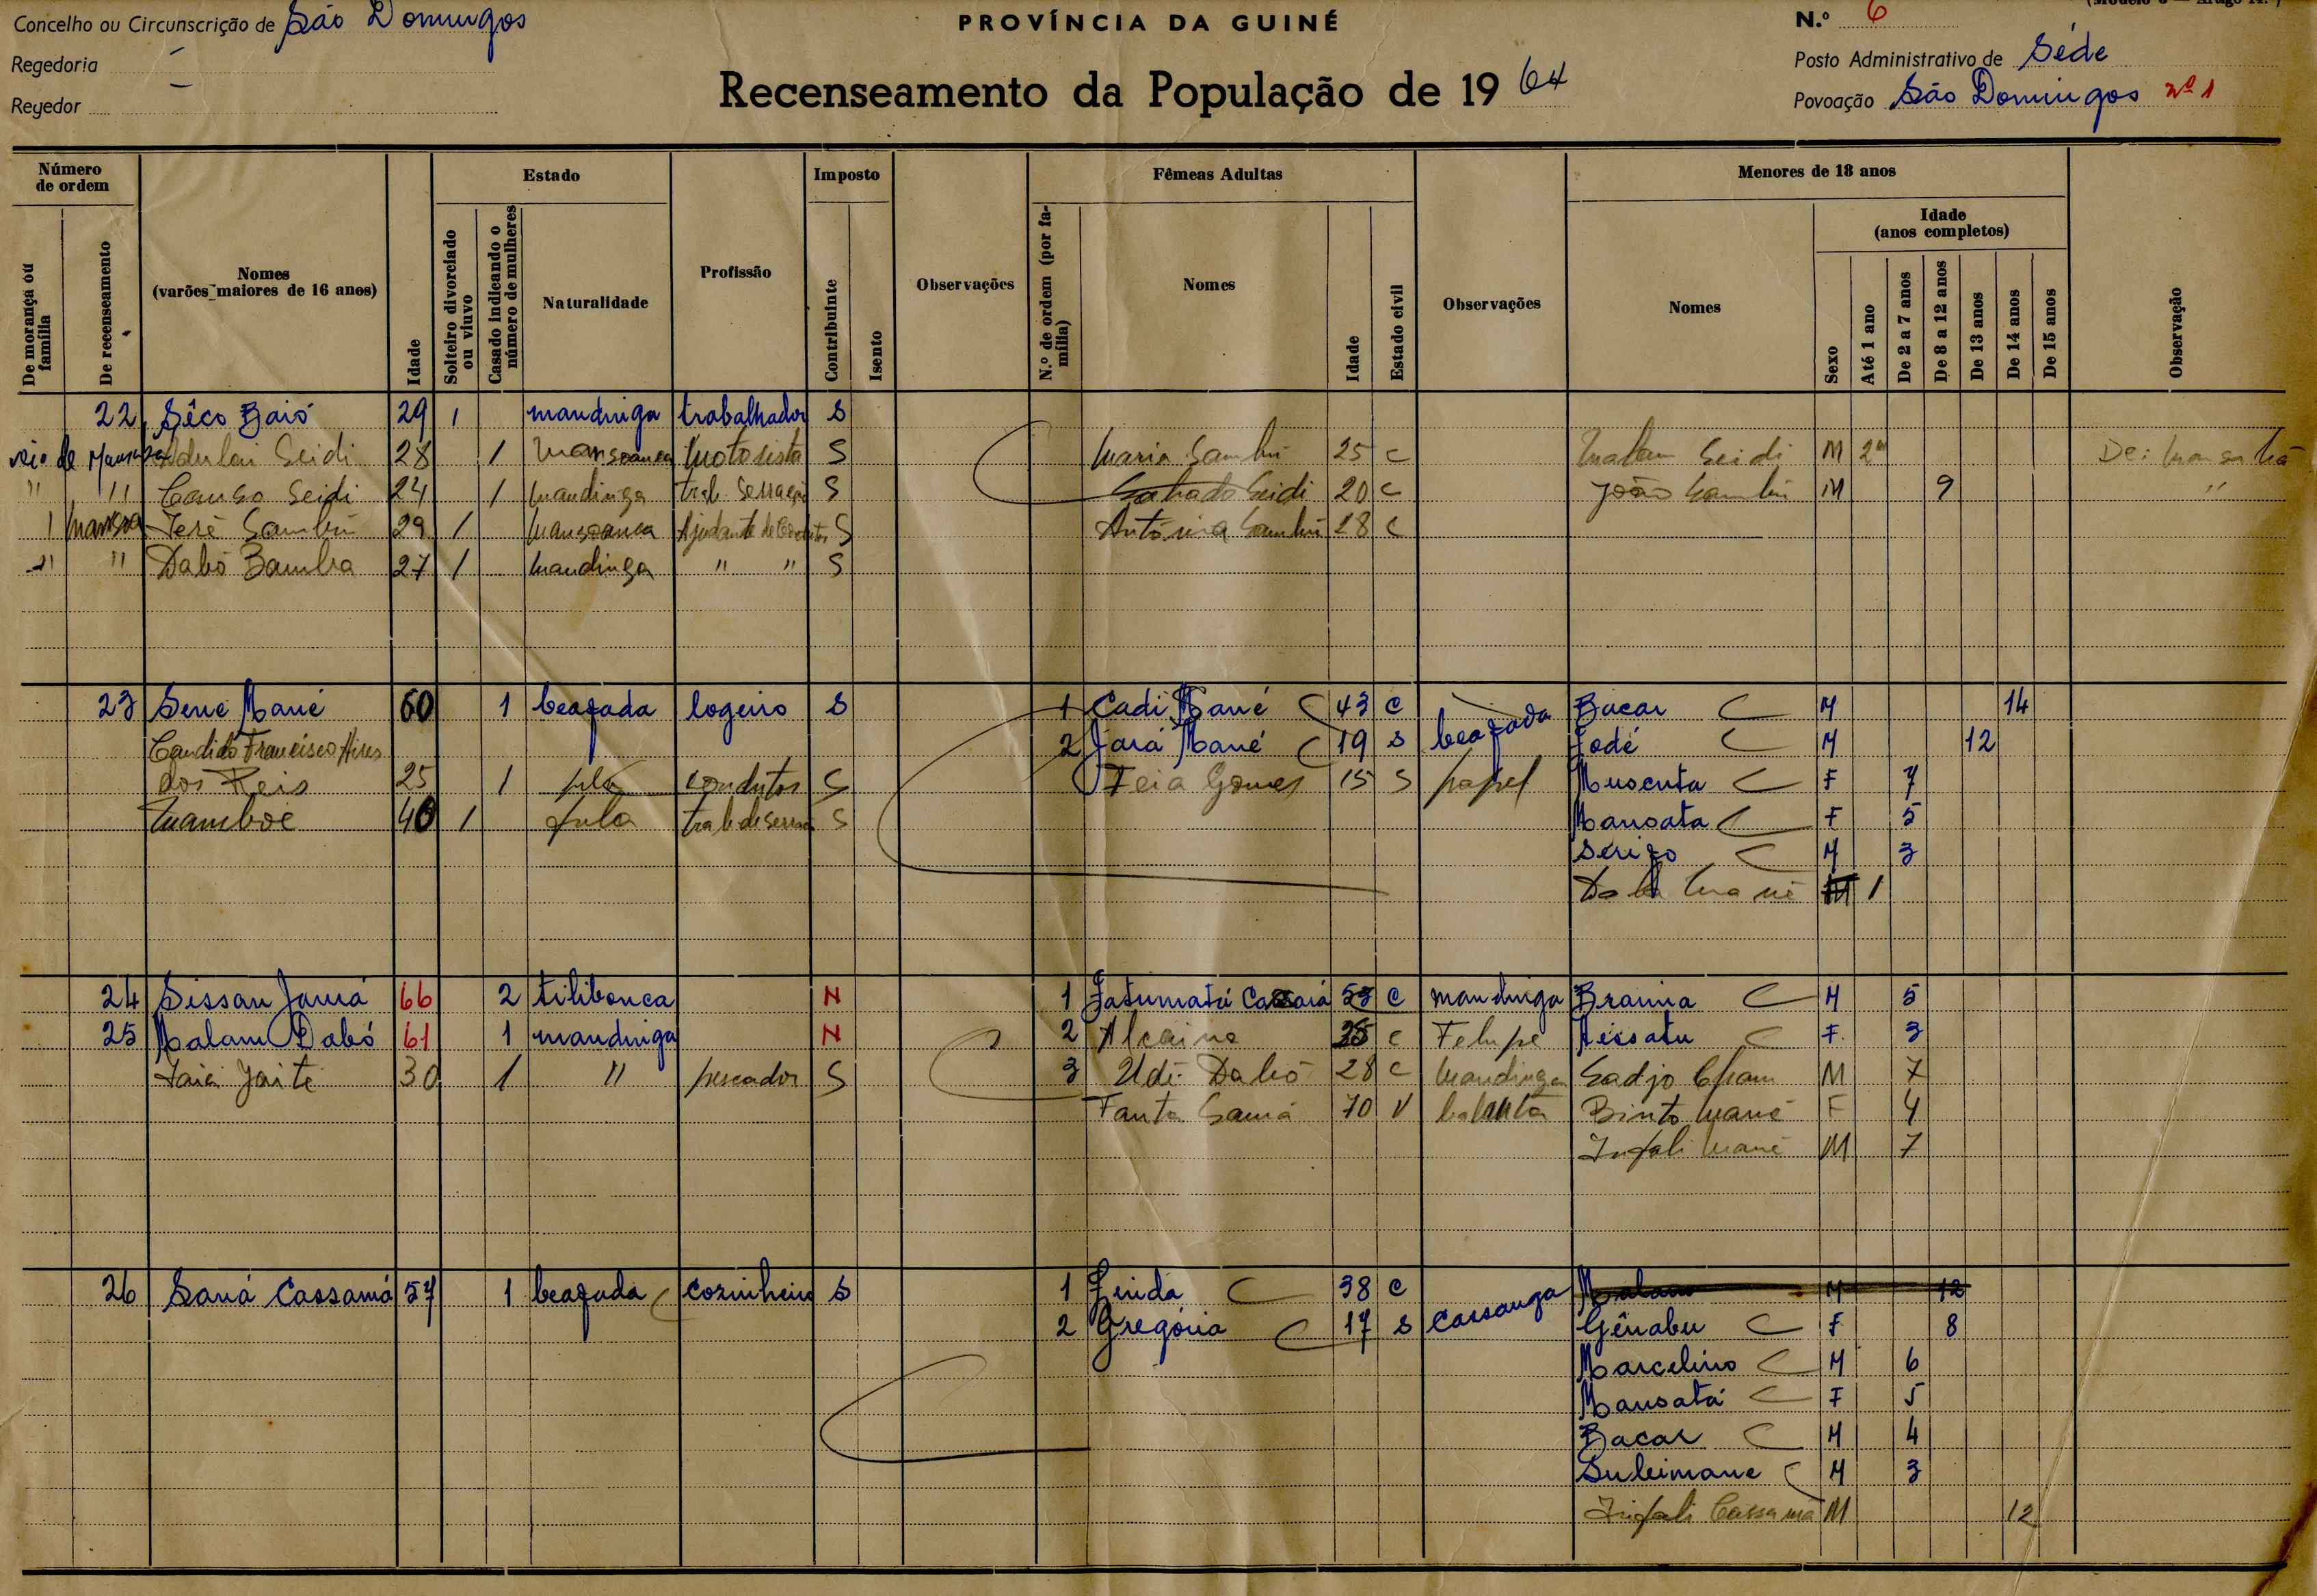 Concelho ou Circunscrição de São Domingos
Regedoria
Regedor
PROVÍNCIA DA GUINÉ
Recenseamento da População de 1964
N.º 6
Posto Administrativo de Séde
Povoação São Domingos nº 1
Número de ordem
De morança ou família
De recenseamento
Nomes (varões maiores de 16 anos)
Idade
Estado
Solteiro divorciado ou viuvo
Casado indicando o número de mulheres
Naturalidade
Profissão
Imposto
Contribuinte
Isento
Observações
Fêmeas Adultas
N.º de ordem (por família)
Nomes
Idade
Estado civil
Observações
Menores de 18 anos
Nomes
Sexo
Idade (anos completos)
Até 1 ano
De 2 a 7 anos
De 8 a 12 anos
De 13 anos
De 14 anos
De 15 anos
Observação
22 Sêco Baió 29 1 mandinga trabalhador S
Seidi 28 1 Mansoanca Motorista S Maria Sambú 25 C Malam Seidi M 2
" " Seidi 24 1 Mandinga trab. Serração S Seidi 20 C João Sambú M 9 "
Sambú 29 1 Mansoanca Ajudante de S António Sambú 28 C
" " Dabó Bamba 27 1 Mandinga " " S
23 Sene Mané 60 1 beafada logeiro S 1 Cadi Mané 43 C beafada Bacar M 14
Candido Francisco Aires 2 Jará Mané 19 S Jodé M 12
dos Reis 25 1 condutor S Feia Gomes 15 S papel Musenta F 7
Mamboé 40 1 fula S Mansata F 5
Serifo M 3
Mané M 1
24 Sissau Jamá 66 2 tilibonca N 1 Fatumatá 53 C mandinga Brama M 5
25 Malam Dabó 61 1 mandinga N 2 Alcaina C Felupe Aissatu F. 3
30 1 " pescador S 3 Udé Dabó 28 C Mandinga Sadjo M 7
Fanta Samá 70 V balanta Binto Mané F 4
Infali Mané M 7
26 Saná Cassamá 57 1 beafada cozinheiro S 1 Linda 38 C Cassanga Malam M 12
2 Gregória 17 S Gênabu F 8
Marcelino M 6
Mansatá F 5
Bacar M 4
Suleimane M 3
Infali Cassamá M 12